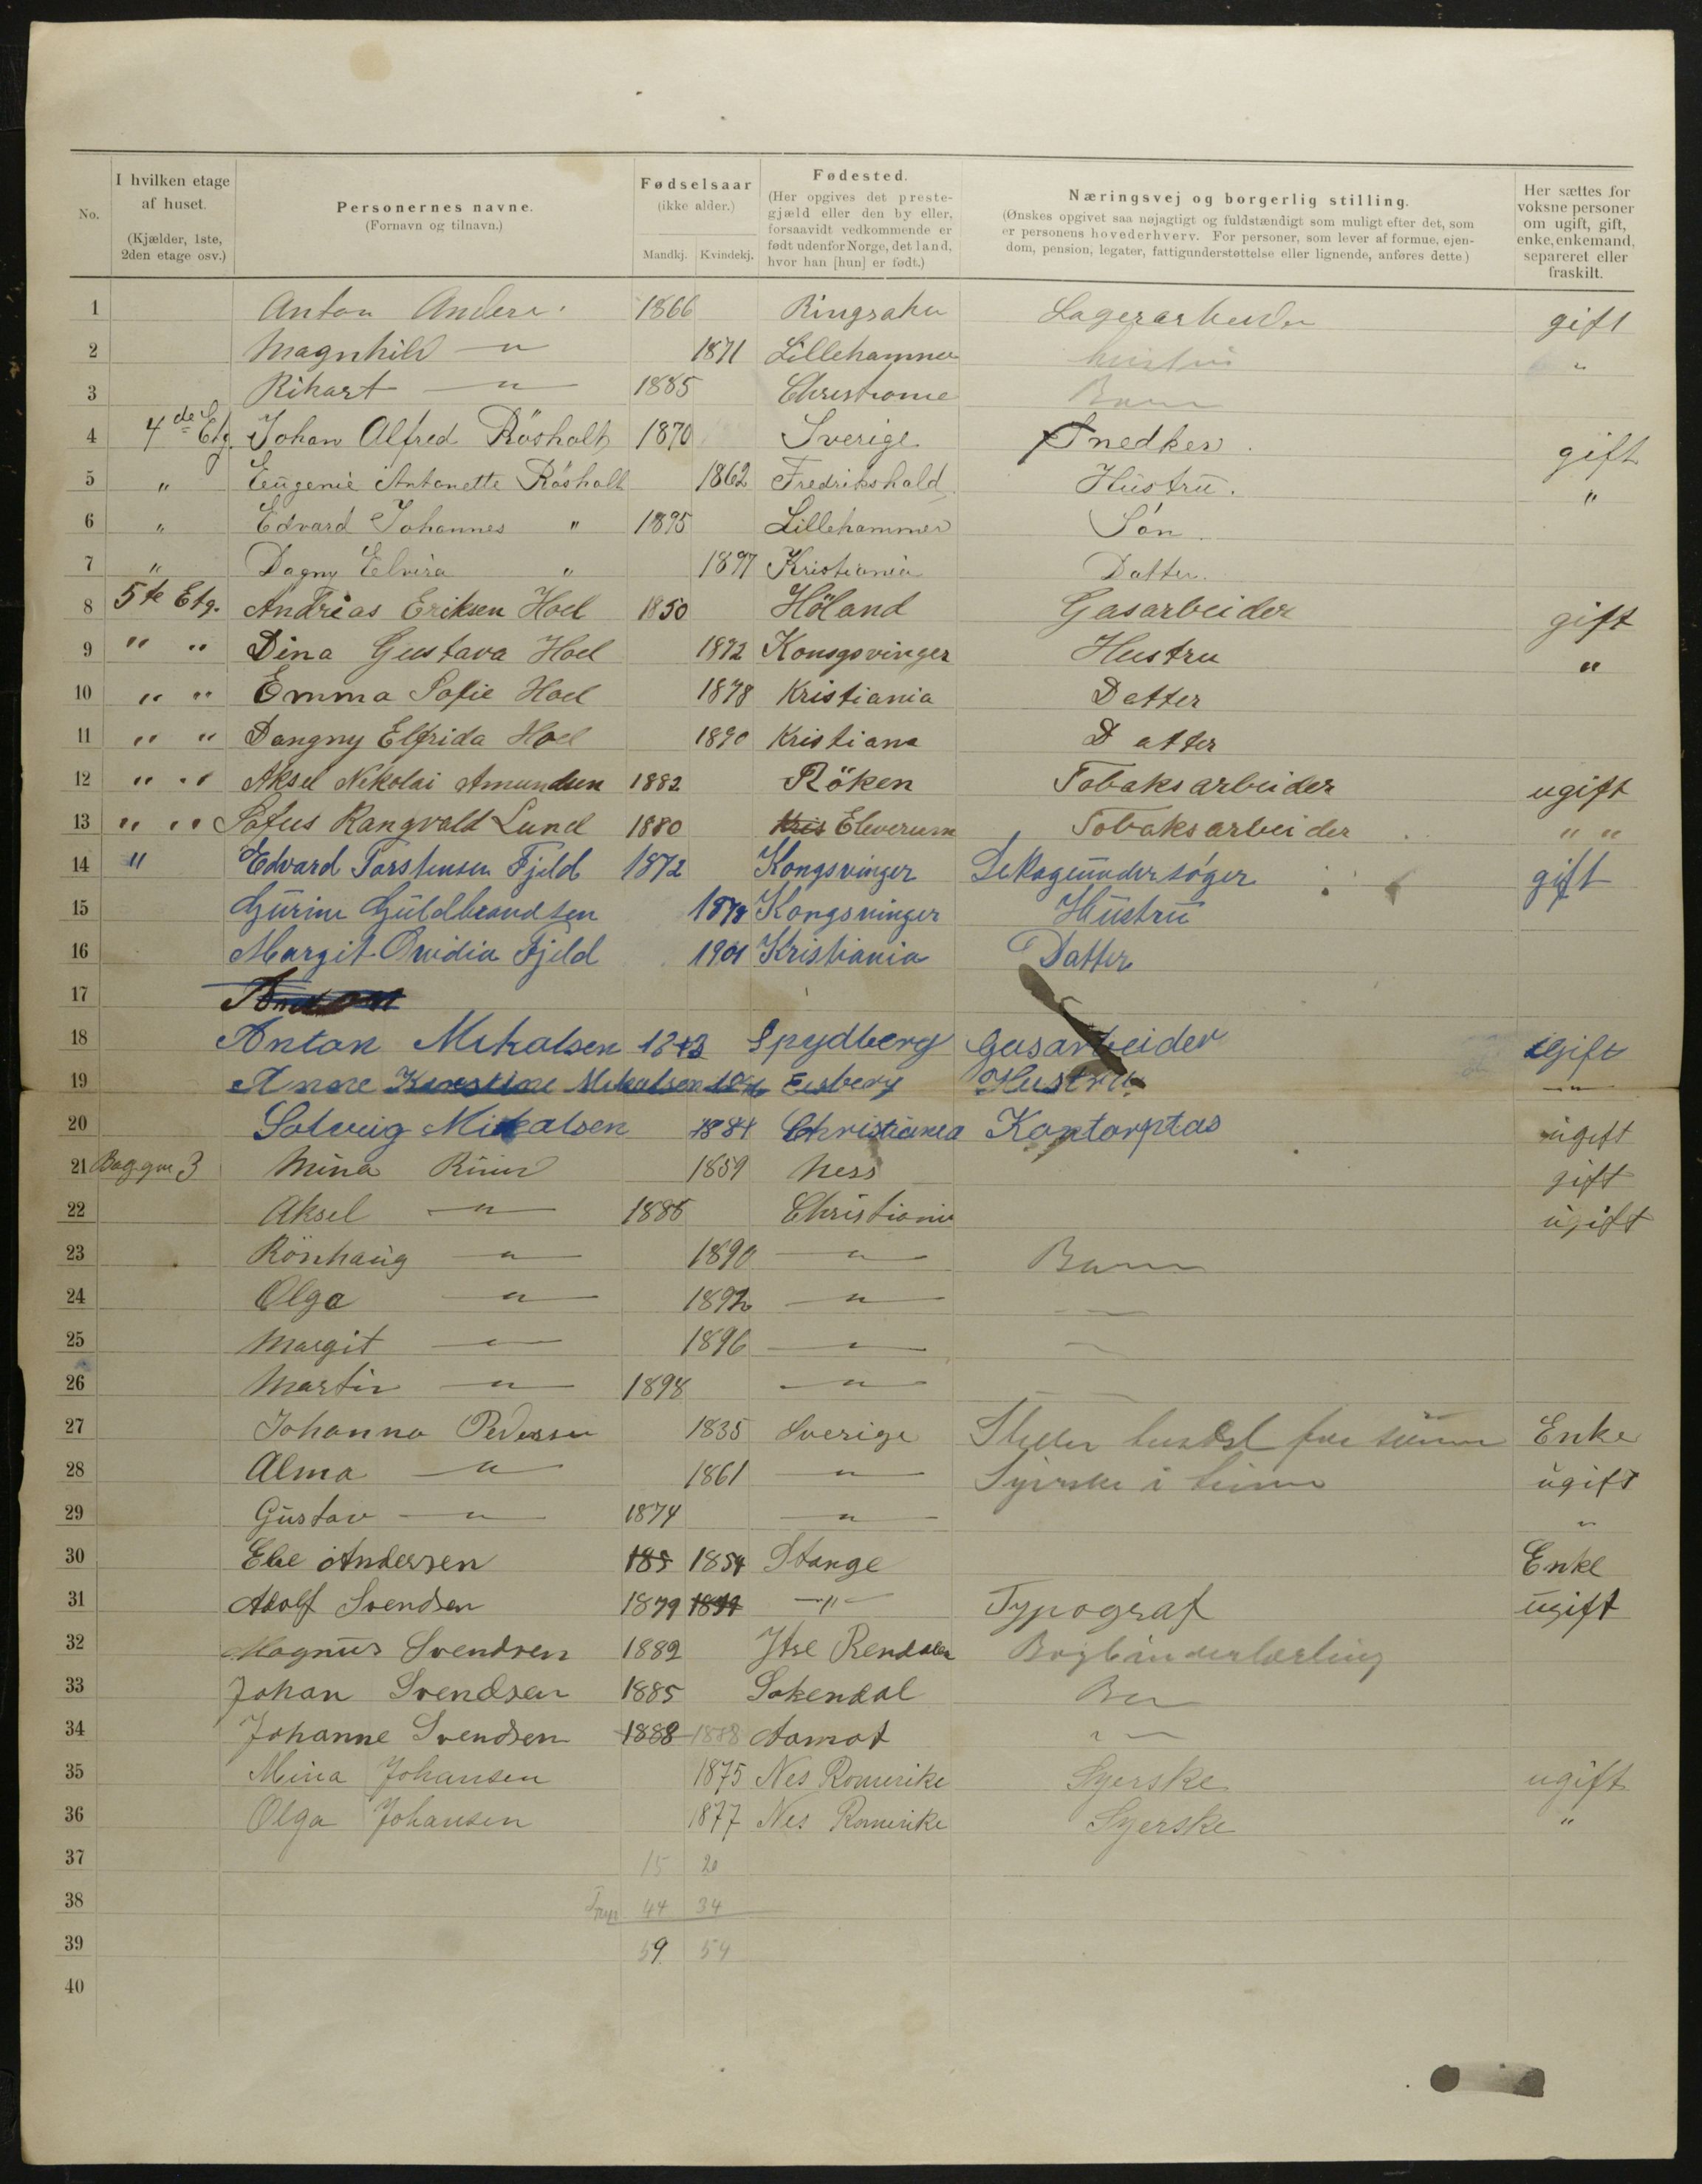 No.
I hvilken etage af huset. (Kjælder, 1ste, 2den etage osv.)
Personernes navne. (Fornavn og tilnavn.)
Fødselsaar (ikke alder.) Mandkj. Kvindekj.
Fødested. (Her opgives det prestegjæld eller den by eller, forsaavidt vedkommende er født udenfor Norge, det land, hvor han [hun] er født.)
Næringsvej og borgerlig stilling. (Ønskes opgivet saa nøjagtigt og fuldstændigt som muligt efter det, som er personens hovederhverv. For personer, som lever af formue, ejendom, pension, legater, fattigunderstøttelse eller lignende, anføres dette)
Her sættes for voksne personer om ugift, gift, enke, enkemand, separeret eller fraskilt.
1 Anton 1866 Lagerarbeider gift
2 Magnhild —"— 1871 Lillehammer "
3 Rikart —"— 1885 Barn
4 4de Etg. Johan Alfred Rösholt 1870 Sverige Snedker. gift
5 " Eugenie Antonette Rösholt 1862 Fredrikshald Hustru. "
6 " Edvard Johannes " 1895 Lillehammer Søn.
7 " Dagny Elvira " 1897 Kristiania Datter.
8 5te Etg. Andreas Eriksen Hoel 1850 Höland Gasarbeider gift
9 " " Dina Gustava Hoel 1872 Kongsvinger Hustru "
10 " " Emma Sofie Hoel 1878 Kristiania Datter
11 " " Dangny Elfrida Hoel 1890 Kristiana Datter
12 " " Aksel Nikolai Amundsen 1882 Röken Tobaksarbeider ugift
13 " " Sofus Rangvald Lund 1880 Kris Eleverum Tobaksarbeider " "
14 " Edvard Torstensen Fjeld 1872 Kongsvinger gift
15 Gurine Guldbrandsen 1878 Kongsvinger Hustru
16 Margit Ovidia Fjeld 1901 Kristiania Datter
17
18 Anton Mikalsen Spydberg Gasarbeider Gift
19 Anne Mikalsen Eidsberg Hustru —"—
20 Solveig Mikalsen 1884 Christiania ugift
21 Baggm 3 Mina 1859 Ness gift
22 Aksel —"— 1885 Christiania ugift
23 Rönhaug —"— 1890 —"— Barn
24 Olga —"— 1892 —"—
25 Margit —"— 1896 —"—
26 Martin —"— 1898 —"—
27 Johanna Pedersen 1835 Sverige Enke
28 Alma —"— 1861 —"— ugift
29 Gustav —"— 1874 —"— "
30 Andersen 185 1854 Stange Enke
31 Adolf Svendsen 1879 —"— Typograf ugift
32 Magnus Svendsen 1882 Ytre Rendalen Bogbinderlærling
33 Johan Svendsen 1885 Sokendal
34 Johanne Svendsen 1888 1888 Aamot
35 Mina Johansen 1875 Nes Romerike Syerske ugift
36 Olga Johansen 1877 Nes Romerike Syerske "
37 15 20
38 44 34
39 59 54
40